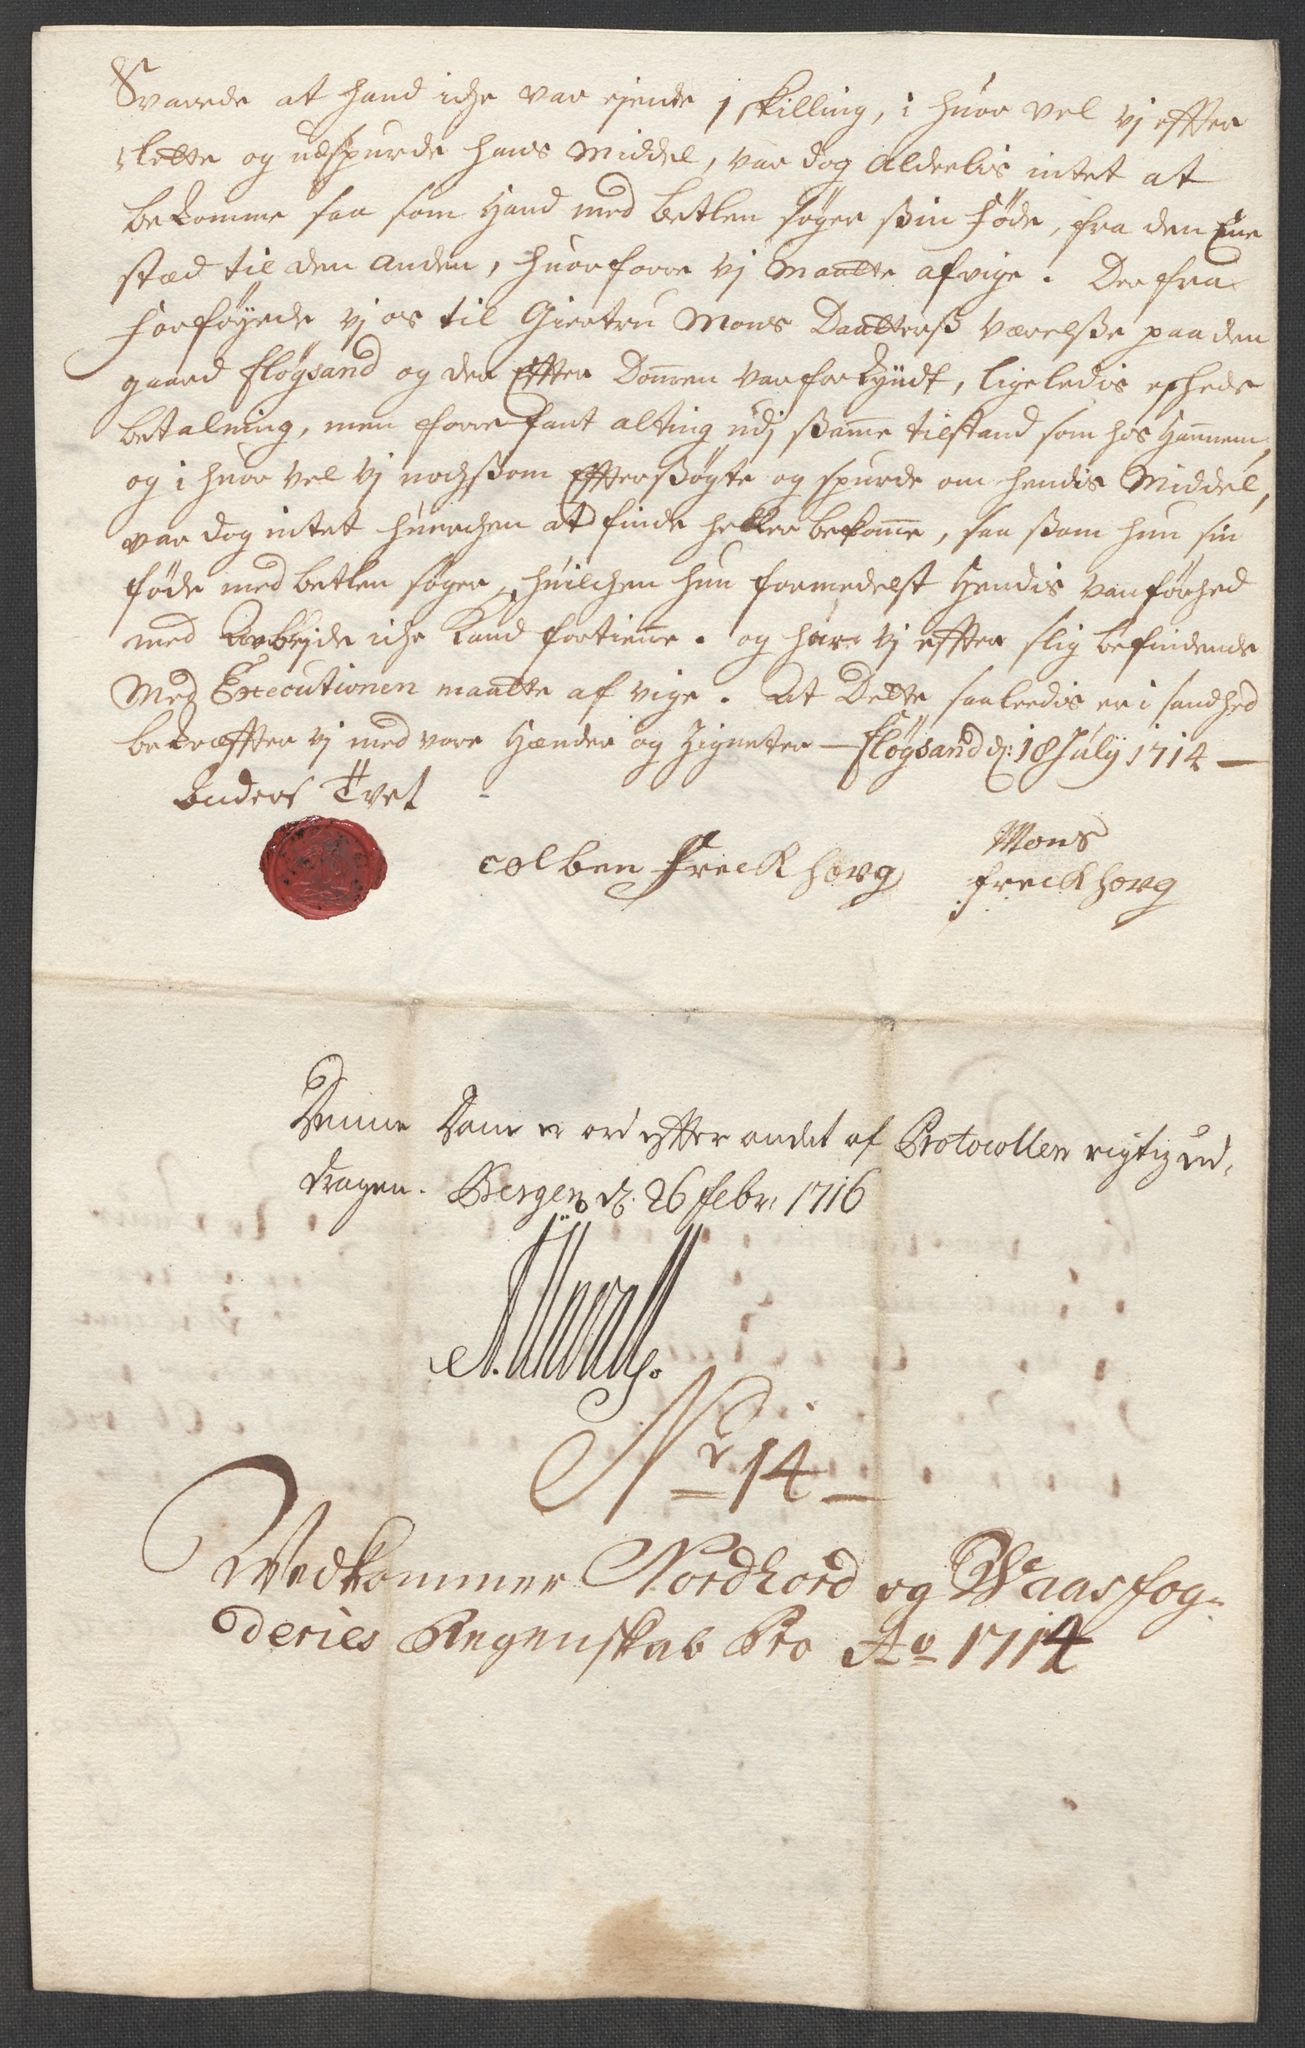 Svarede at hand iche var ejende 1 skilling, i huor vel vj effter
leette og udspurde hans Middel, var dog alderlis intet at
bekomme saa som Hand med betlen søger sin føde, fra den Ene
stæd til den anden, huorforre vj maatte afvige. Der fra
forføyede vj os til Giertru Mons Daatterß værelße paa den
gaard fløgsand og der Effter Dom̄en var forkÿndt, ligeledis eschede
betalning, men forrefant alting udj ßam̄e tilstand som hos Hannem,
og i huor vel vj nochßom Effterßøgte og spurde om hendis Middel,
var dog intet huerchen at finde heller bekom̄e, saa ßom hun sin
føde med betlen søger, huilchen hun formedelst Hendis vanførhed
med Arbejde iche Kand fortien̄e. og har vj effter slig befindende
Med Executionen maatte af vige. At Dette saaledis er i sandhed
bekræffter vj med vore Hænder og Zigneter — Fløgsand d: 18 Julÿ 1714 —
Anders Tvet
colben Freckhovg
Mons
freckhovg
Denne Dom er ord effter andet af Protocollen rigtig ud,
dragen. Bergen d. 26 febr: 1716
No 14
Vedkommer Nordhord og Waas fog-
deries Regenskab Pro Ao 1714